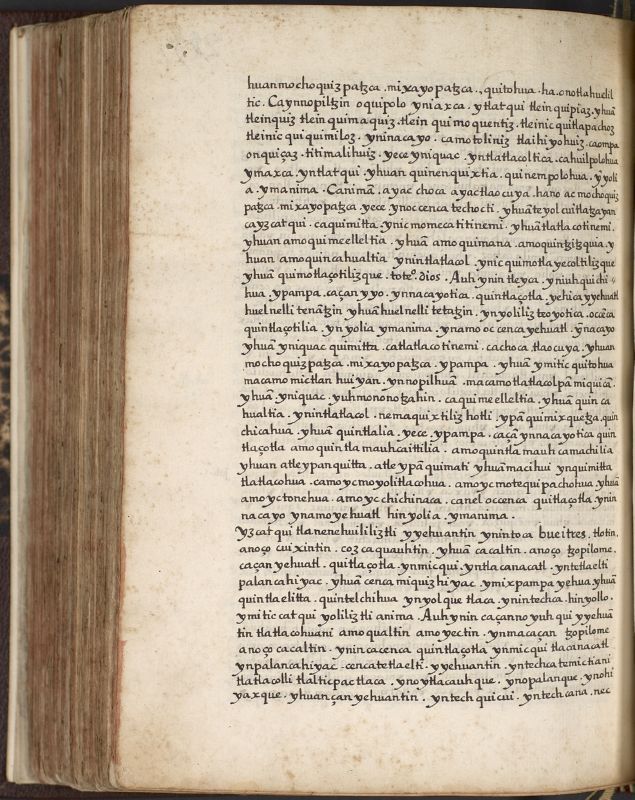 huanmochoquizpatzca . mixayopatzca . , quitohua . ha . onotlahuelil
tic . Caynnopiltzin oquipolo yniaxca . ytlatqui tlein quipiaz . yhuā
tleinquiz tlein quimaquiz . tlein qui moquentiz . tleinic quitlapachoz
tleinic quiquimiloz . yninacayo . camotoliniz tlaihiyohuiz . caompa
onquiças . titimalihuiz . yece yniquac . yntlatlacoltica . cahuilpolohua
ymaxca . yntlatqui . yhuan quinenquixtia . quinempolohua . ȳyoli
a . ymanima . Canimā . ayac choca ayactlaocuya . hano ac mochoquiz
patzca . mixayopatzca yece ynoccenca techocti . yhuāteyolcuitlatzayan
cayzcatqui . caquimitta . ynicmomecatitinemi . yhuātlatlacotinemi .
yhuan amoquimeelleltia . yhuā amoquimana . amoquintzitzquia . y
huan amoquincahualtia ynintlatlacol . ynic quimotlayecoltilizque
yhuā quimotlaçotilizque . toteº. dios . Auh ynin tleyca . yniuh quichi
hua . ypampa . caçan yyo . ynnacayotica . quintlaçotla . yehica yyehuatl
huelnelli tenātzin yhuā huelnelli tetatzin . ynyoliliz teoyotica . ocēca
quintlaçotilia . ynyolia ymanima . ynamo oc cenca yehuatl . ȳnacayo
yhuā yniquac quimitta . catlatlacotinemi . cachoca tlaocuya . yhuan
mochoquizpatzca . mixayopatzca ypampa . yhuā ymitic quitohua
macamo mictlan huiyan . ynnopilhuā . macamotlatlacolpā miquicā .
yhuā yniquac . yuhmononotzahin . ca quimeelleltia . yhuā quin ca
hualtia . ynintlatlacol . nemaquixtiliz hotli . ypā quimixquetza . quin
chicahua . yhuā quintlalia . yece . ypampa . caçā ynnacayotica quin
tlaçotla amo quintla mauhcaittilia . amoquintla mauhcamachilia
yhuan atleypanquitta . atle ypā quimati yhuāmacihui ynquimitta
tlatlacohua . camoycmoyolitlacohua . amoycmotequipachohua yhuā
amoyctonehua . amoyc chichinaca . canel occenca quitlaçotla ynin
nacayo ynamoyehuatl hinyolia . ymanima .
Yzcatqui tlanenehuililiztli yyehuantin ynintoca bueitres . tlotin .
anoço cuixintin . cozcaquauhtin . yhuā cacaltin . anoço tzopilome .
caçan yehuatl . quitlaçotla . ynmicqui . yntlacanacatl . yntetlaelti
palancahiyac . yhuā cenca miquizhiyac . ymixpampa yehua . yhuā
quintlaelitta . quintelchihua ynyolque tlaca . ynintechca . hinyollo .
ymitic catqui yoliliztli anima . Auh ynin caçannoyuh qui yyehuā
tin tlatlacohuani amoqualtin amoyectin . ynmacaçan tzopilome
anoço cacaltin . ynincacenca quintlaçotla ynmicqui tlacanacatl
ynpalancahiyac . cencatetlaelti . yyehuantin . yntechca temictiani
tlatlacolli tlalticpactlaca . ynoytlacauhque . ynopalanque . ynohi
yaxque . yhuan çan yehuantin . yntech quicui . yntechcana . nec